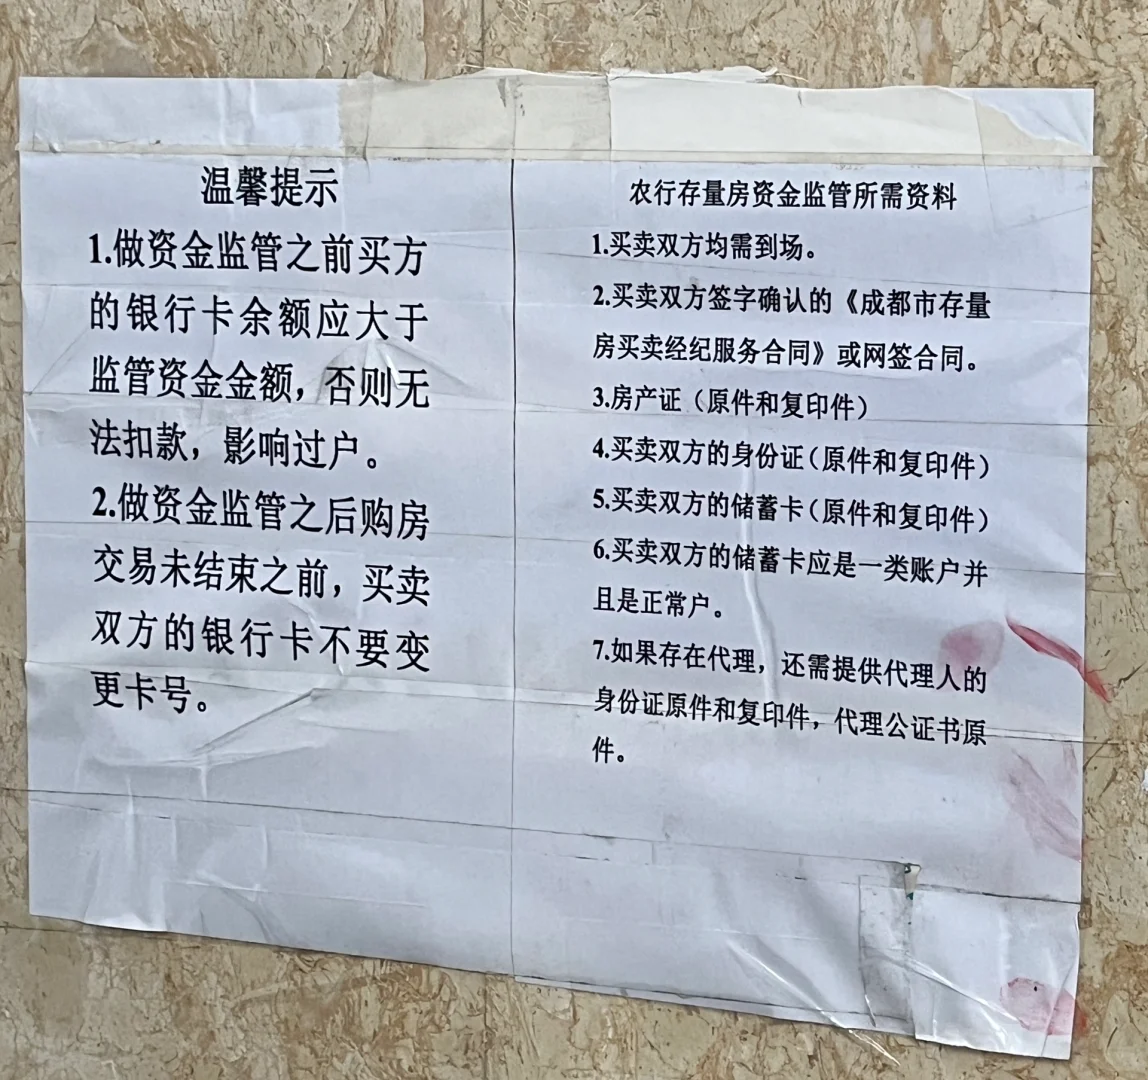 温馨提示
1.做资金监管之前买方
的银行卡余额应大于
监管资金金额，否则无
法扣款，影响过户。
2.做资金监管之后购房
交易未结束之前，买卖
双方的银行卡不要变
更卡号。
农行存量房资金监管所需资料
1.买卖双方均需到场。
2.买卖双方签字确认的《成都市存量
房买卖经纪服务合同》或网签合同。
3.房产证（原件和复印件）
4.买卖双方的身份证（原件和复印件）
5.买卖双方的储蓄卡（原件和复印件）
6.买卖双方的储蓄卡应是一类账户并
且是正常户。
7.如果存在代理，还需提供代理人的
身份证原件和复印件，代理公证书原
件。